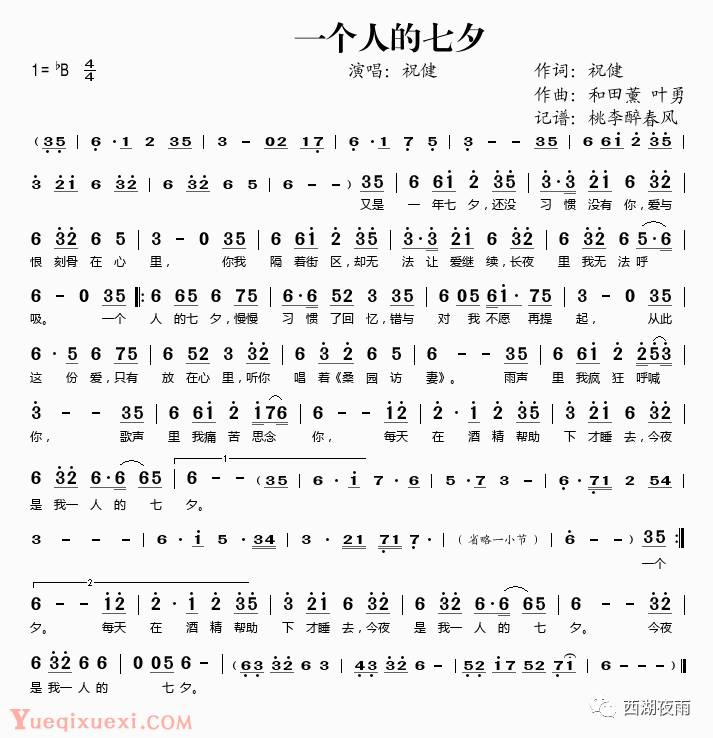 一个人的七夕
1=♭B 4/4
演唱：祝健
作词：祝健
作曲：和田薰 叶勇
记谱：桃李醉春风
(35 | 6·1 2 35 | 3 - 02 17 | 6·1 7 5 | 3 - - 35 | 6 61 2 35 |
3 21 6 32 | 6 32 6 5 | 6 - - ) 35 | 6 61 2 35 | 3·3 21 6 32 |
又是 一 年七 夕，还没 习 惯 没有 你，爱与
6 32 6 5 | 3 - 0 35 | 6 61 2 35 | 3·3 21 6 32 | 6 32 6 5·6 |
恨 刻骨 在 心 里， 你我 隔 着街 区，却无 法 让 爱继 续，长夜 里 我无 法 呼
6 - 0 35 |: 6 65 6 75 | 6·6 52 3 32 | 6 05 61·75 | 3 - 0 35 |
吸。 一个 人 的七 夕，慢慢 习 惯 了回 忆，错与 对 我 不愿 再提 起， 从此
6·5 6 75 | 6 52 3 32 | 6 3 2 6 2 | 6 - - 35 | 6 61 2 253 |
这 份 爱，只有 放 在心 里，听你 唱 着《桑 园 访 妻》。 雨声 里 我疯 狂 呼喊
3 - - 35 | 6 61 2 176 | 6 - - 12 | 2·1 2 35 | 3 21 6 32 |
你， 歌声 里 我痛 苦 思念 你， 每天 在 酒 精 帮助 下 才睡 去，今夜
1
6 32 6·6 65 | 6 - - (35 | 6 · 6·1 7·6 | 5 7 3 - | 6·71 2 54 |
是 我一 人 的 七 夕。
3 - - - | 6·1 5·34 | 3·21 71 7· | (省略一小节) | 6 - - ) 35 :|
一个
2
6 - - 12 | 2·1 2 35 | 3 21 6 32 | 6 32 6·6 65 | 6 - - 32 |
夕。 每天 在 酒 精 帮助 下 才睡 去，今夜 是 我一 人 的 七 夕。 今夜
6 32 6 6 | 0 05 6 - | (63 32 6 3 | 43 32 6 - | 52 17 52 71 | 6 - - - ) ‖
是 我一 人 的 七 夕。
Yueqixuexi.com
西湖夜雨